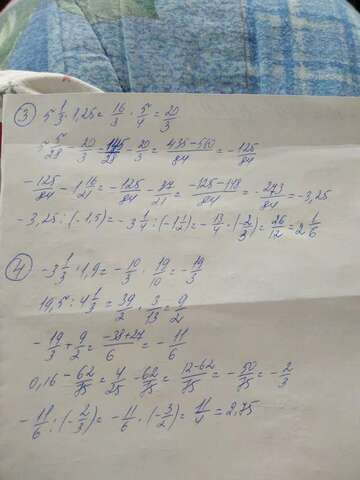 ③ 5 1/3 · 1,25 = 16/3 · 5/4 = 20/3
5 5/28 - 20/3 = 145/28 - 20/3 = (435-560)/84 = -125/84
-125/84 - 1 16/21 = -125/84 - 37/21 = (-125-148)/84 = -273/84 = -3,25
-3,25 : (-1,5) = -3 1/4 : (-1 1/2) = -13/4 · (-2/3) = 26/12 = 2 1/6
④ -3 1/3 · 1,9 = -10/3 · 19/10 = -19/3
19,5 : 4 1/3 = 39/2 · 3/13 = 9/2
-19/3 + 9/2 = (-38+27)/6 = -11/6
0,16 - 62/75 = 4/25 - 62/75 = (12-62)/75 = -50/75 = -2/3
-11/6 : (-2/3) = -11/6 · (-3/2) = 11/4 = 2,75